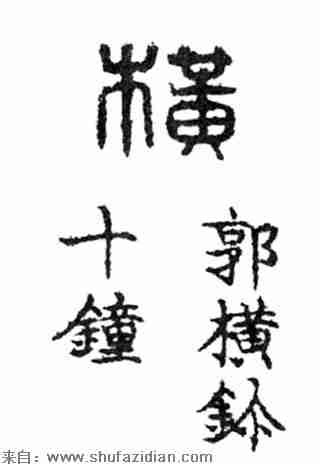 橫
郭橫鉨
十鐘
来自: www.shufazidian.com